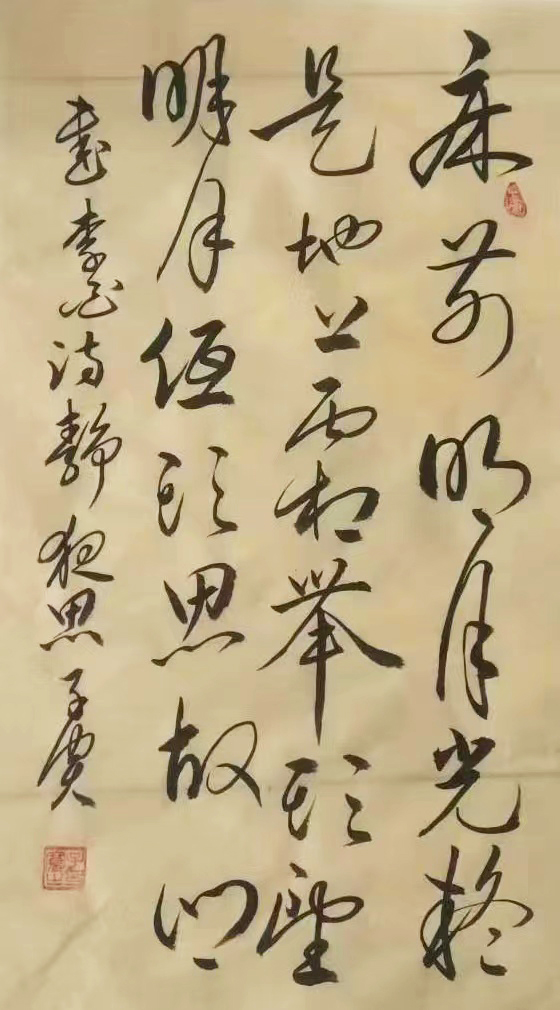 床前明月光疑
是地上霜举头望
明月低头思故乡
书李白诗静夜思子